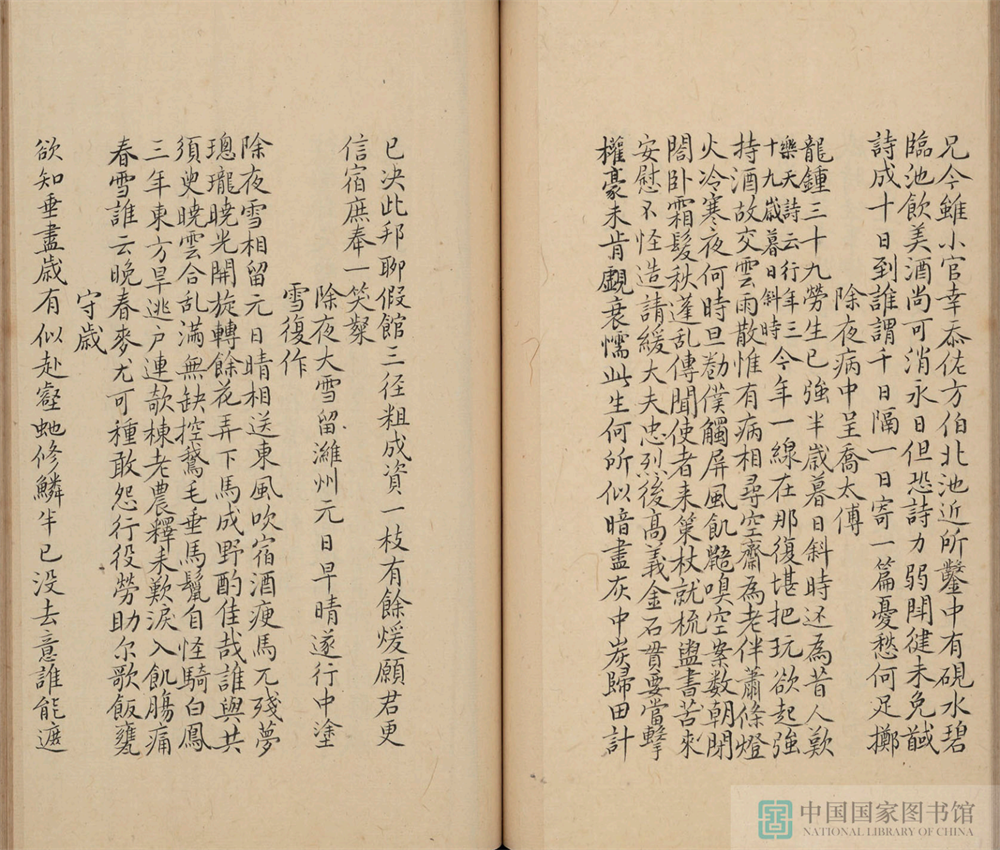 兄今雖小官幸忝佐方伯北池近所鑿中有硯水碧
臨池飲美酒尚可消永日但恐詩力弱鬪健未免馘
詩成十日到誰謂千日隔一日寄一篇憂愁何足擲
除夜病中呈喬太傅
龍鍾三十九勞生已強半歲暮日斜時还為昔人歎
樂天詩云行年三
十九歲暮日斜時今年一線在那復堪把玩欲起強
持酒故交雲雨散惟有病相尋空齋為老伴蕭條燈
火冷寒夜何時旦勌僕觸屏風飢鼯嗅空案数朝閉
閤卧霜髮秋蓬乱傳聞使者来策杖就梳盥書苦来
安慰不怪造請緩大夫忠烈後高義金石貫要當擊
權豪未肯覷衰懦此生何所似暗盡灰中炭歸田計
已决此邦聊假館三径粗成資一枝有餘煖願君更
信宿庶奉一笑粲
除夜大雪留濰州元日早晴遂行中塗
雪復作
除夜雪相留元日晴相送東風吹宿酒瘦馬兀残夢
璁瓏暁光開旋轉餘花弄下馬成野酌佳哉誰與共
須臾暁雲合乱滿無缺控鵞毛垂馬鬣自怪騎白鳳
三年東方旱逃户連欹棟老農釋耒歎淚入飢腸痛
春雪誰云晚春麥尤可種敢怨行役勞助尔歌飯甕
守歲
欲知垂盡歲有似赴壑虵修鱗半已没去意誰能遮
中国国家图书馆
NATIONAL LIBRARY OF CHINA